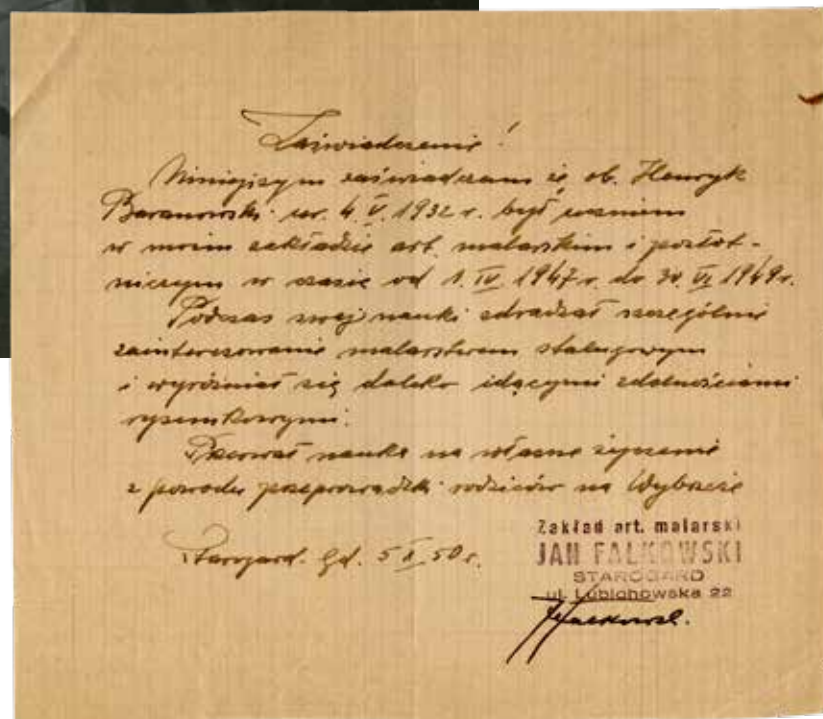 Zaświadczenie!
Niniejszym zaświadczam iż ob. Henryk
Baranowski ur. 4 V. 1932 r. był uczniem
w moim zakładzie art. malarskim i pozłot-
niczym w czasie od 1. IV. 1947 r. do 30. VI 1949 r.
Podczas swej nauki zdradzał szczególnie
zainteresowanie malarstwem stalugowym
i wyróżniał się daleko idącymi zdolnościami
rysunkowymi.
Przerwał naukę na własne życzenie
z powodu przeprowadzki rodziców na Wybrzeże
Starogard. Gd. 5 X 50 r.
Zakład art. malarski
JAN FALKOWSKI
STAROGARD
ul. Lubichowska 22
JFalkowski.